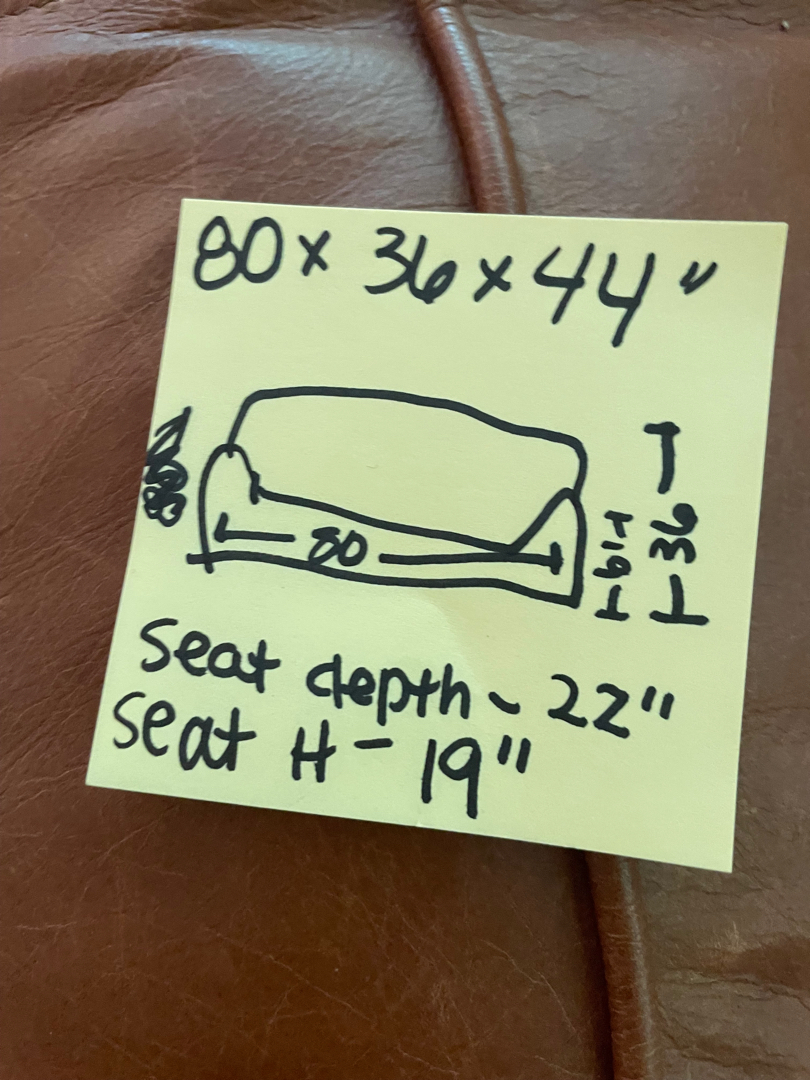 80 x 36 x 44"
80
19
36
seat depth - 22"
seat H - 19"